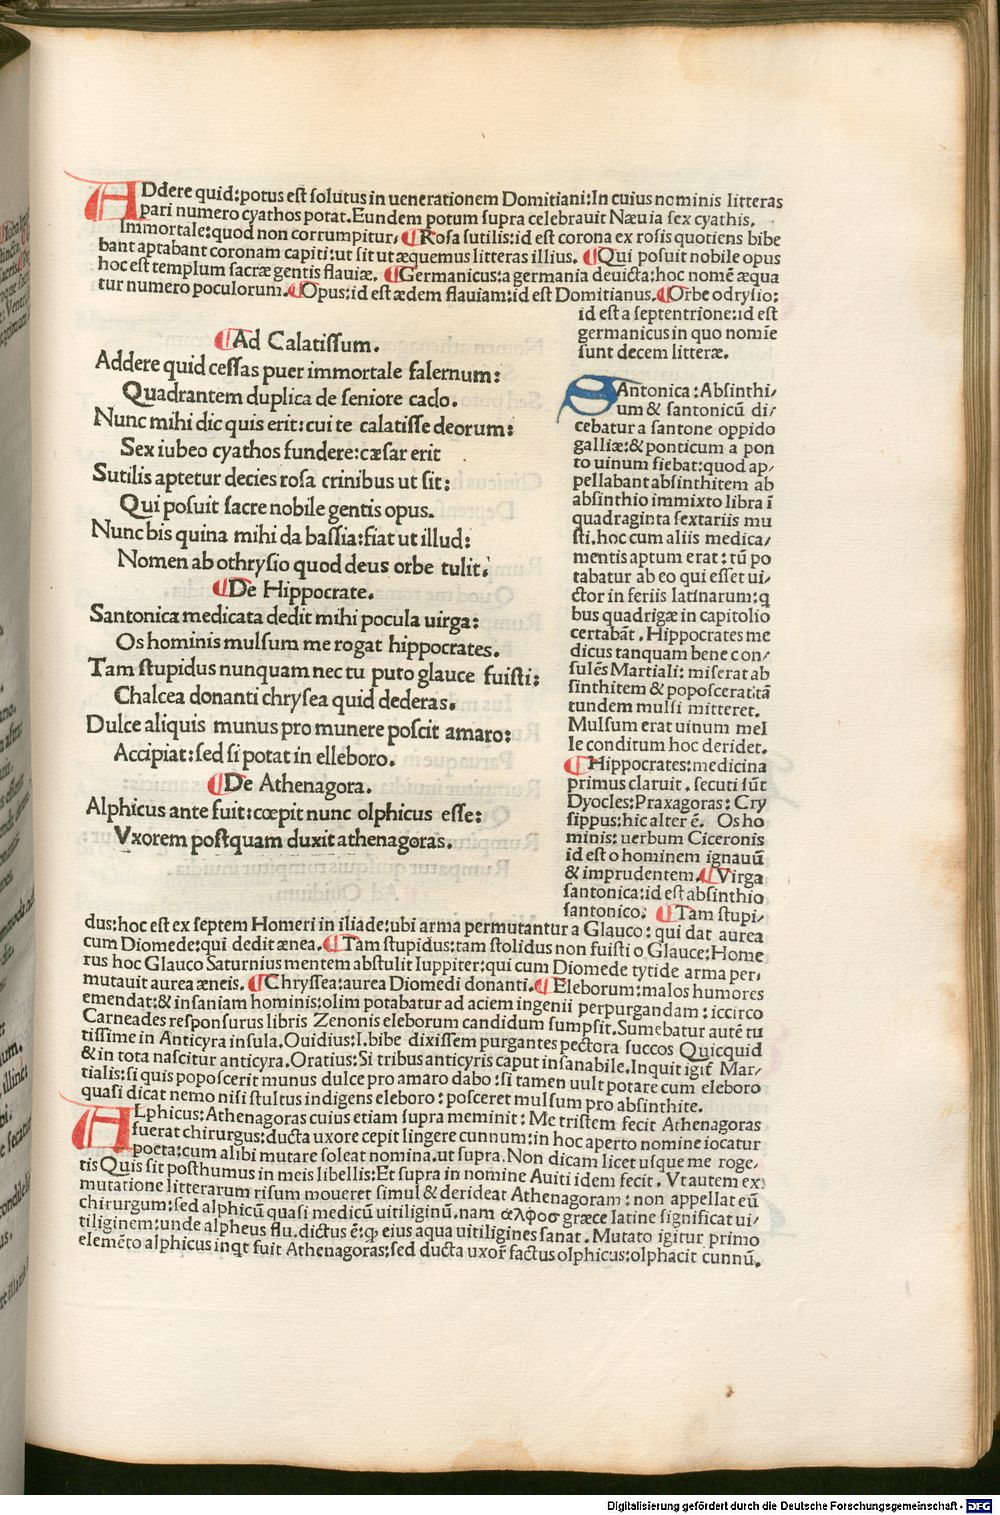 ADdere quid:potus est solutus in uenerationem Domitiani:In cuius nominis litteras
pari numero cyathos potat.Eundem potum supra celebrauit Næuia sex cyathis.
Immortale:quod non corrumpitur. ¶Rosa sutilis:id est corona ex rosis quotiens bibe
bant aptabant coronam capiti:ut sit ut æquemus litteras illius. ¶Qui posuit nobile opus
hoc est templum sacræ gentis flauiæ. ¶Germanicus:a germania deuicta:hoc nomē æqua
tur numero poculorum.¶Opus:id est ædem flauiam:id est Domitianus.¶Orbe odrysio:
id est a septentrione:id est
germanicus in quo nomīe
sunt decem litteræ.
¶Ad Calatissum.
Addere quid cessas puer immortale falernum:
Quadrantem duplica de seniore cado.
Nunc mihi dic quis erit:cui te calatisse deorum:
Sex iubeo cyathos fundere:cæsar erit
Sutilis aptetur decies rosa crinibus ut sit:
Qui posuit sacre nobile gentis opus.
Nunc bis quina mihi da bassia:fiat ut illud:
Nomen ab othrysio quod deus orbe tulit.
¶De Hippocrate.
Santonica medicata dedit mihi pocula uirga:
Os hominis mulsum me rogat hippocrates.
Tam stupidus nunquam nec tu puto glauce fuisti:
Chalcea donanti chrysea quid dederas.
Dulce aliquis munus pro munere poscit amaro:
Accipiat:sed si potat in elleboro.
¶De Athenagora.
Alphicus ante fuit:cœpit nunc olphicus esse:
Vxorem postquam duxit athenagoras.
SAntonica:Absinthi/
um & santonicū di/
cebatur a santone oppido
galliæ:& ponticum a pon
to uinum fiebat:quod ap/
pellabant absinthitem ab
absinthio immixto libra ī
quadraginta sextariis mu
sti.hoc cum aliis medica/
mentis aptum erat:tū po
tabatur ab eo qui esset ui/
ctor in feriis latinarum:q
bus quadrigæ in capitolio
certabāt. Hippocrates me
dicus tanquam bene con/
sulēs Martiali: miserat ab
sinthitem & poposcerat:tā
tundem mulsi mitteret.
Mulsum erat uinum mel
le conditum hoc deridet.
¶Hippocrates:medicina
primus claruit. secuti sūt
Dyocles:Praxagoras: Cry
sippus:hic alter ē. Os ho
minis: uerbum Ciceronis
id est o hominem ignauū
& imprudentem.¶Virga
santonica:id est absinthio
santonico. ¶Tam stupi/
dus:hoc est ex septem Homeri in iliade:ubi arma permutantur a Glauco: qui dat aurea
cum Diomede:qui dedit ænea.¶Tam stupidus:tam stolidus non fuisti o Glauce:Home
rus hoc Glauco Saturnius mentem abstulit Iuppiter:qui cum Diomede tytide arma per/
mutauit aurea æneis. ¶Chryssea:aurea Diomedi donanti.¶Eleborum:malos humores
emendat:& insaniam hominis:olim potabatur ad aciem ingenii perpurgandam: iccirco
Carneades responsurus libris Zenonis eleborum candidum sumpsit.Sumebatur autē tu
tissime in Anticyra insula.Ouidius:I.bibe dixissem purgantes pectora succos Quicquid
& in tota nascitur anticyra.Oratius:Si tribus anticyris caput insanabile.Inquit igiť Mar/
tialis:si quis poposcerit munus dulce pro amaro dabo:si tamen uult potare cum eleboro
quasi dicat nemo nisi stultus indigens eleboro:posceret mulsum pro absinthite.
ALphicus:Athenagoras cuius etiam supra meminit: Me tristem fecit Athenagoras
fuerat chirurgus:ducta uxore cepit lingere cunnum:in hoc aperto nomine iocatur
poeta:cum alibi mutare soleat nomina.ut supra. Non dicam licet usque me roge/
tis Quis sit posthumus in meis libellis:Et supra in nomine Auiti idem fecit. Vt autem ex
mutatione litterarum risum moueret simul & derideat Athenagoram: non appellat eū
chirurgum:sed alphicū quasi medicū uitiliginū.nam αλφοσ græce latine significat ui/
tiliginem:unde alpheus flu.dictus ē:ꝙ eius aqua uitiligines sanat. Mutato igitur primo
elemēto alphicus inqt fuit Athenagoras:sed ducta uxoř factus olphicus:olphacit cunnū.
Digitalisierung gefördert durch die Deutsche Forschungsgemeinschaft - DFG